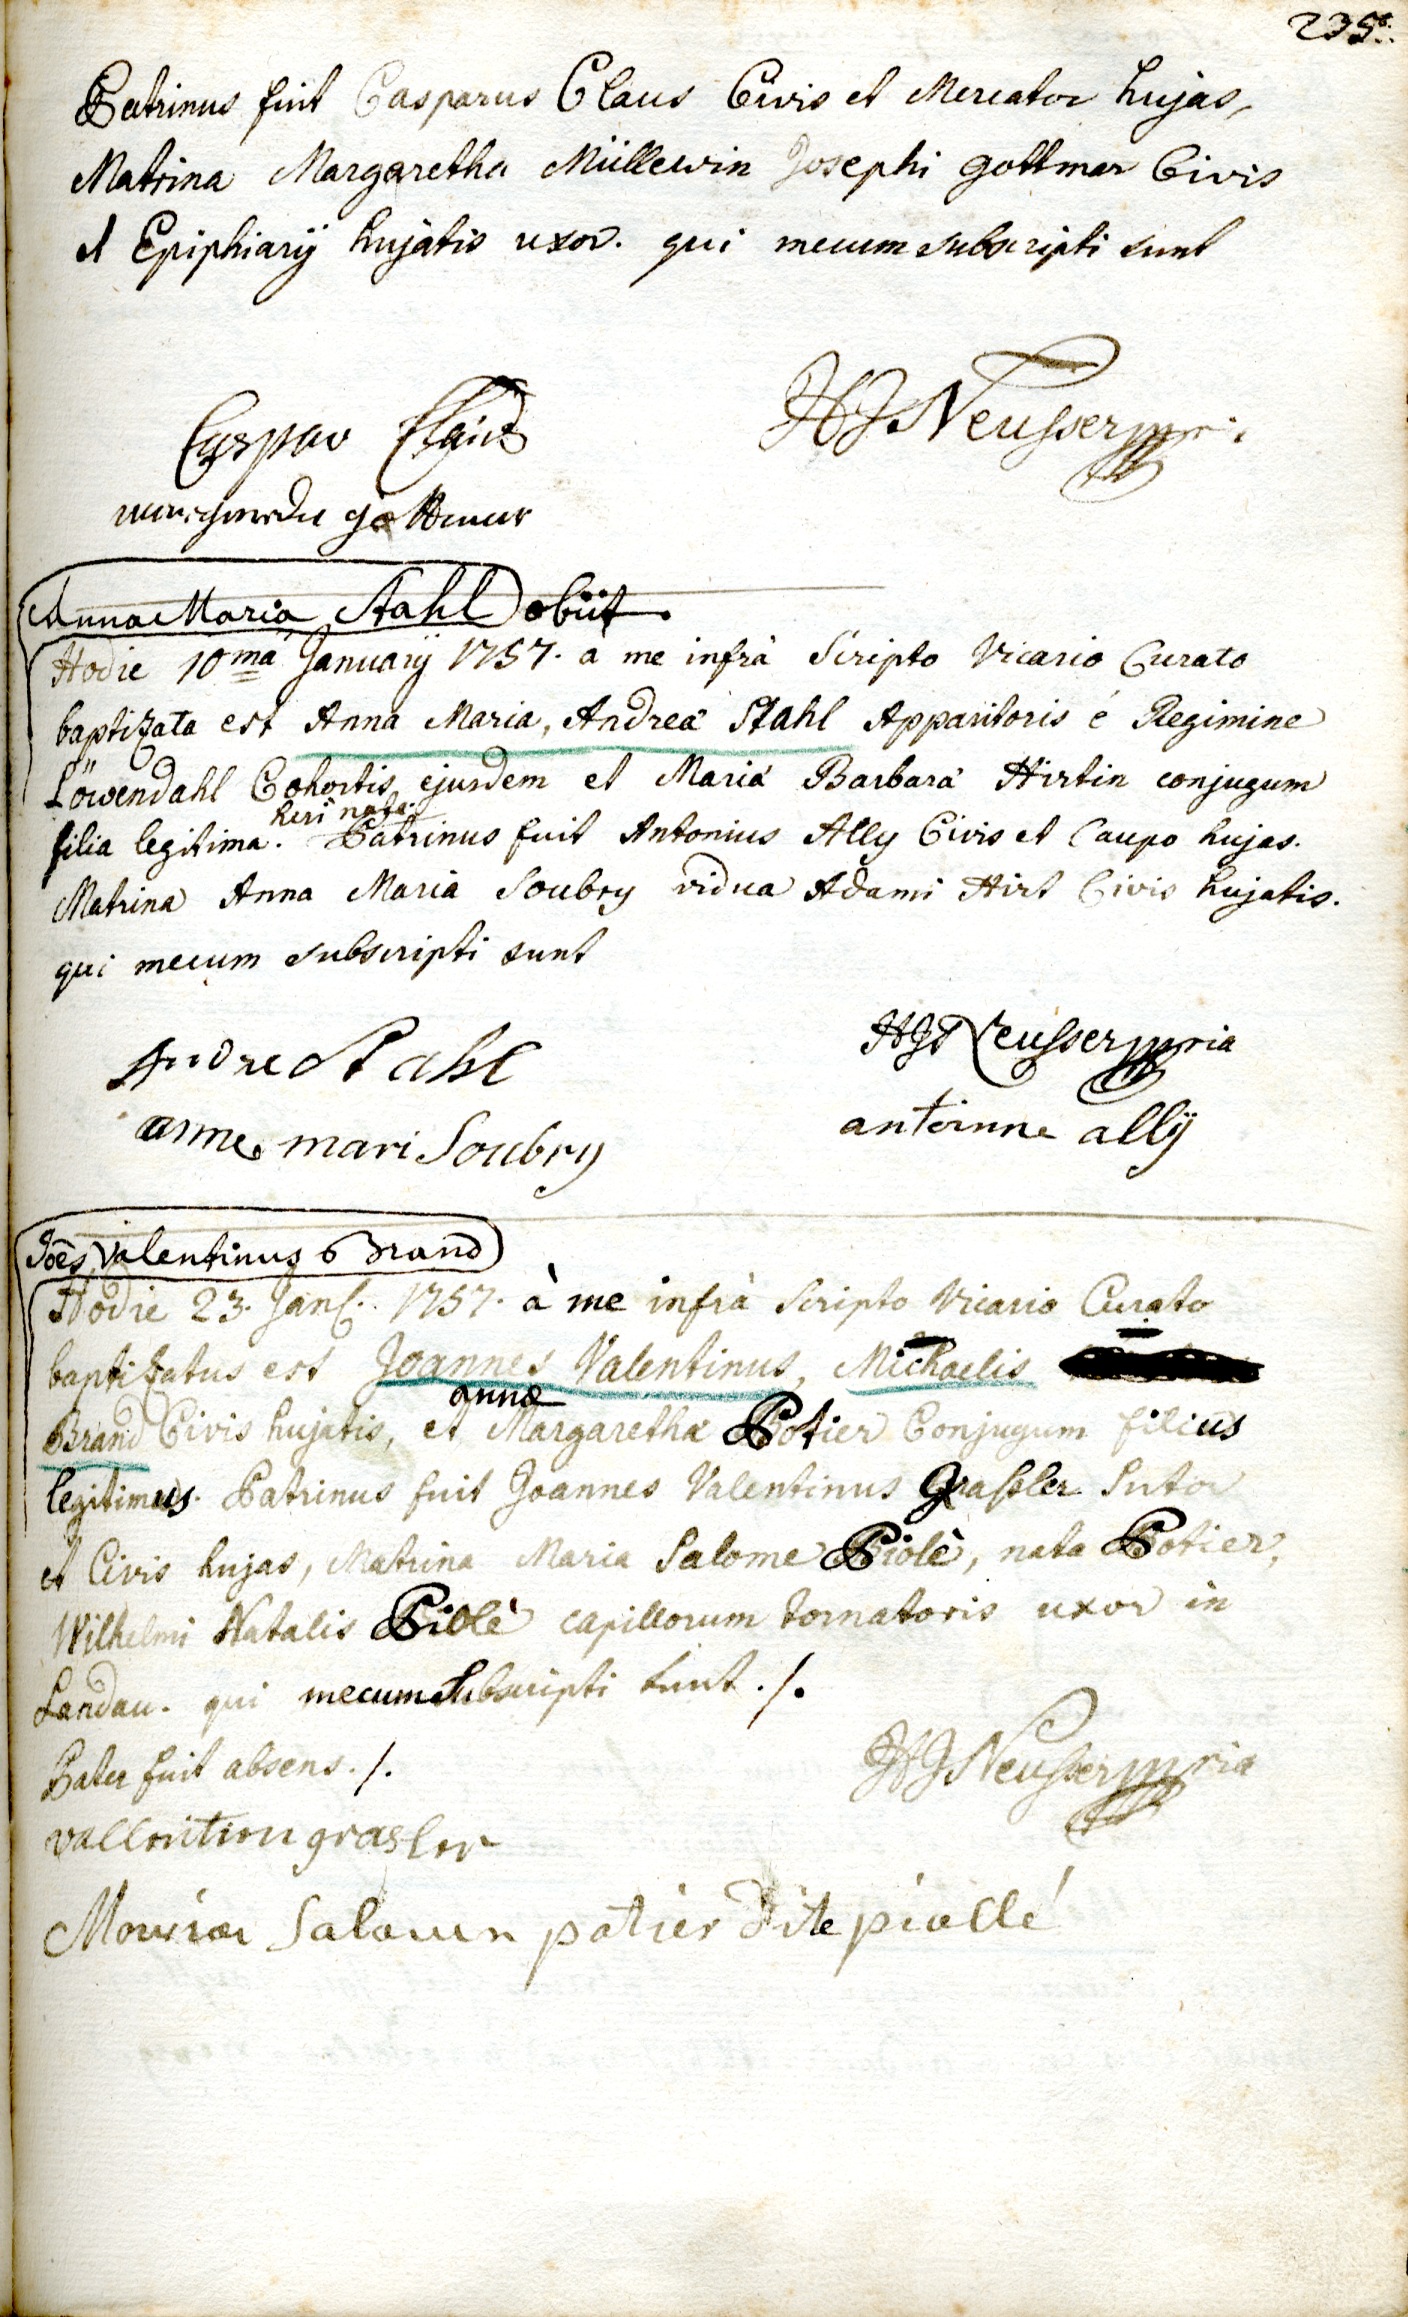 235
Patrinus fuit Casparus Claus Civis et Mercator hujas,
Matrina Margaretha Müllerin Josephi gottmar Civis
et Ephiphiarÿ hujatis uxor. qui mecum subscripti sunt
Caspar Claus
HJNeusser mpria
gottmar
Anna Maria Stahl obiit.
Hodie 10ma Januarÿ 1757. a me infrà Scripto Vicario Curato
baptizata est Anna Maria, Andreä Stahl Apparitoris é Regimine
Löwendahl Cohortis ejusdem et Mariä Barbarä Hirtin conjugum
heri nata.
filia legitima. Patrinus fuit Antonius Ally Civis et Caupo hujas.
Matrina Anna Maria Soubry vidua Adami Hirt Civis hujatis.
qui mecum subscripti sunt
Andre Stahl
HJNeusser mpria
anne mari Soubry
antoinne allÿ
Joês Valentinus Brand
Hodie 23. Jan. 1757. à me infrà Scripto Vicario Curato
baptizatus est Joannes Valentinus, Michaelis
annæ
Brand Civis hujatis, et Margarethä Potier Conjugum filius
legitimus. Patrinus fuit Joannes Valentinus Grassler Sutor
et Civis hujas, Matrina Maria Salome Piolè, nata Potier,
Wilhelmi Natalis Piolè capillorum tornatoris uxor in
Landau. qui mecum Subscripti sunt ./.
Pater fuit absens ./.
HJNeusser mpria
vallentien grasler
Maria Salomen potier dite piollé